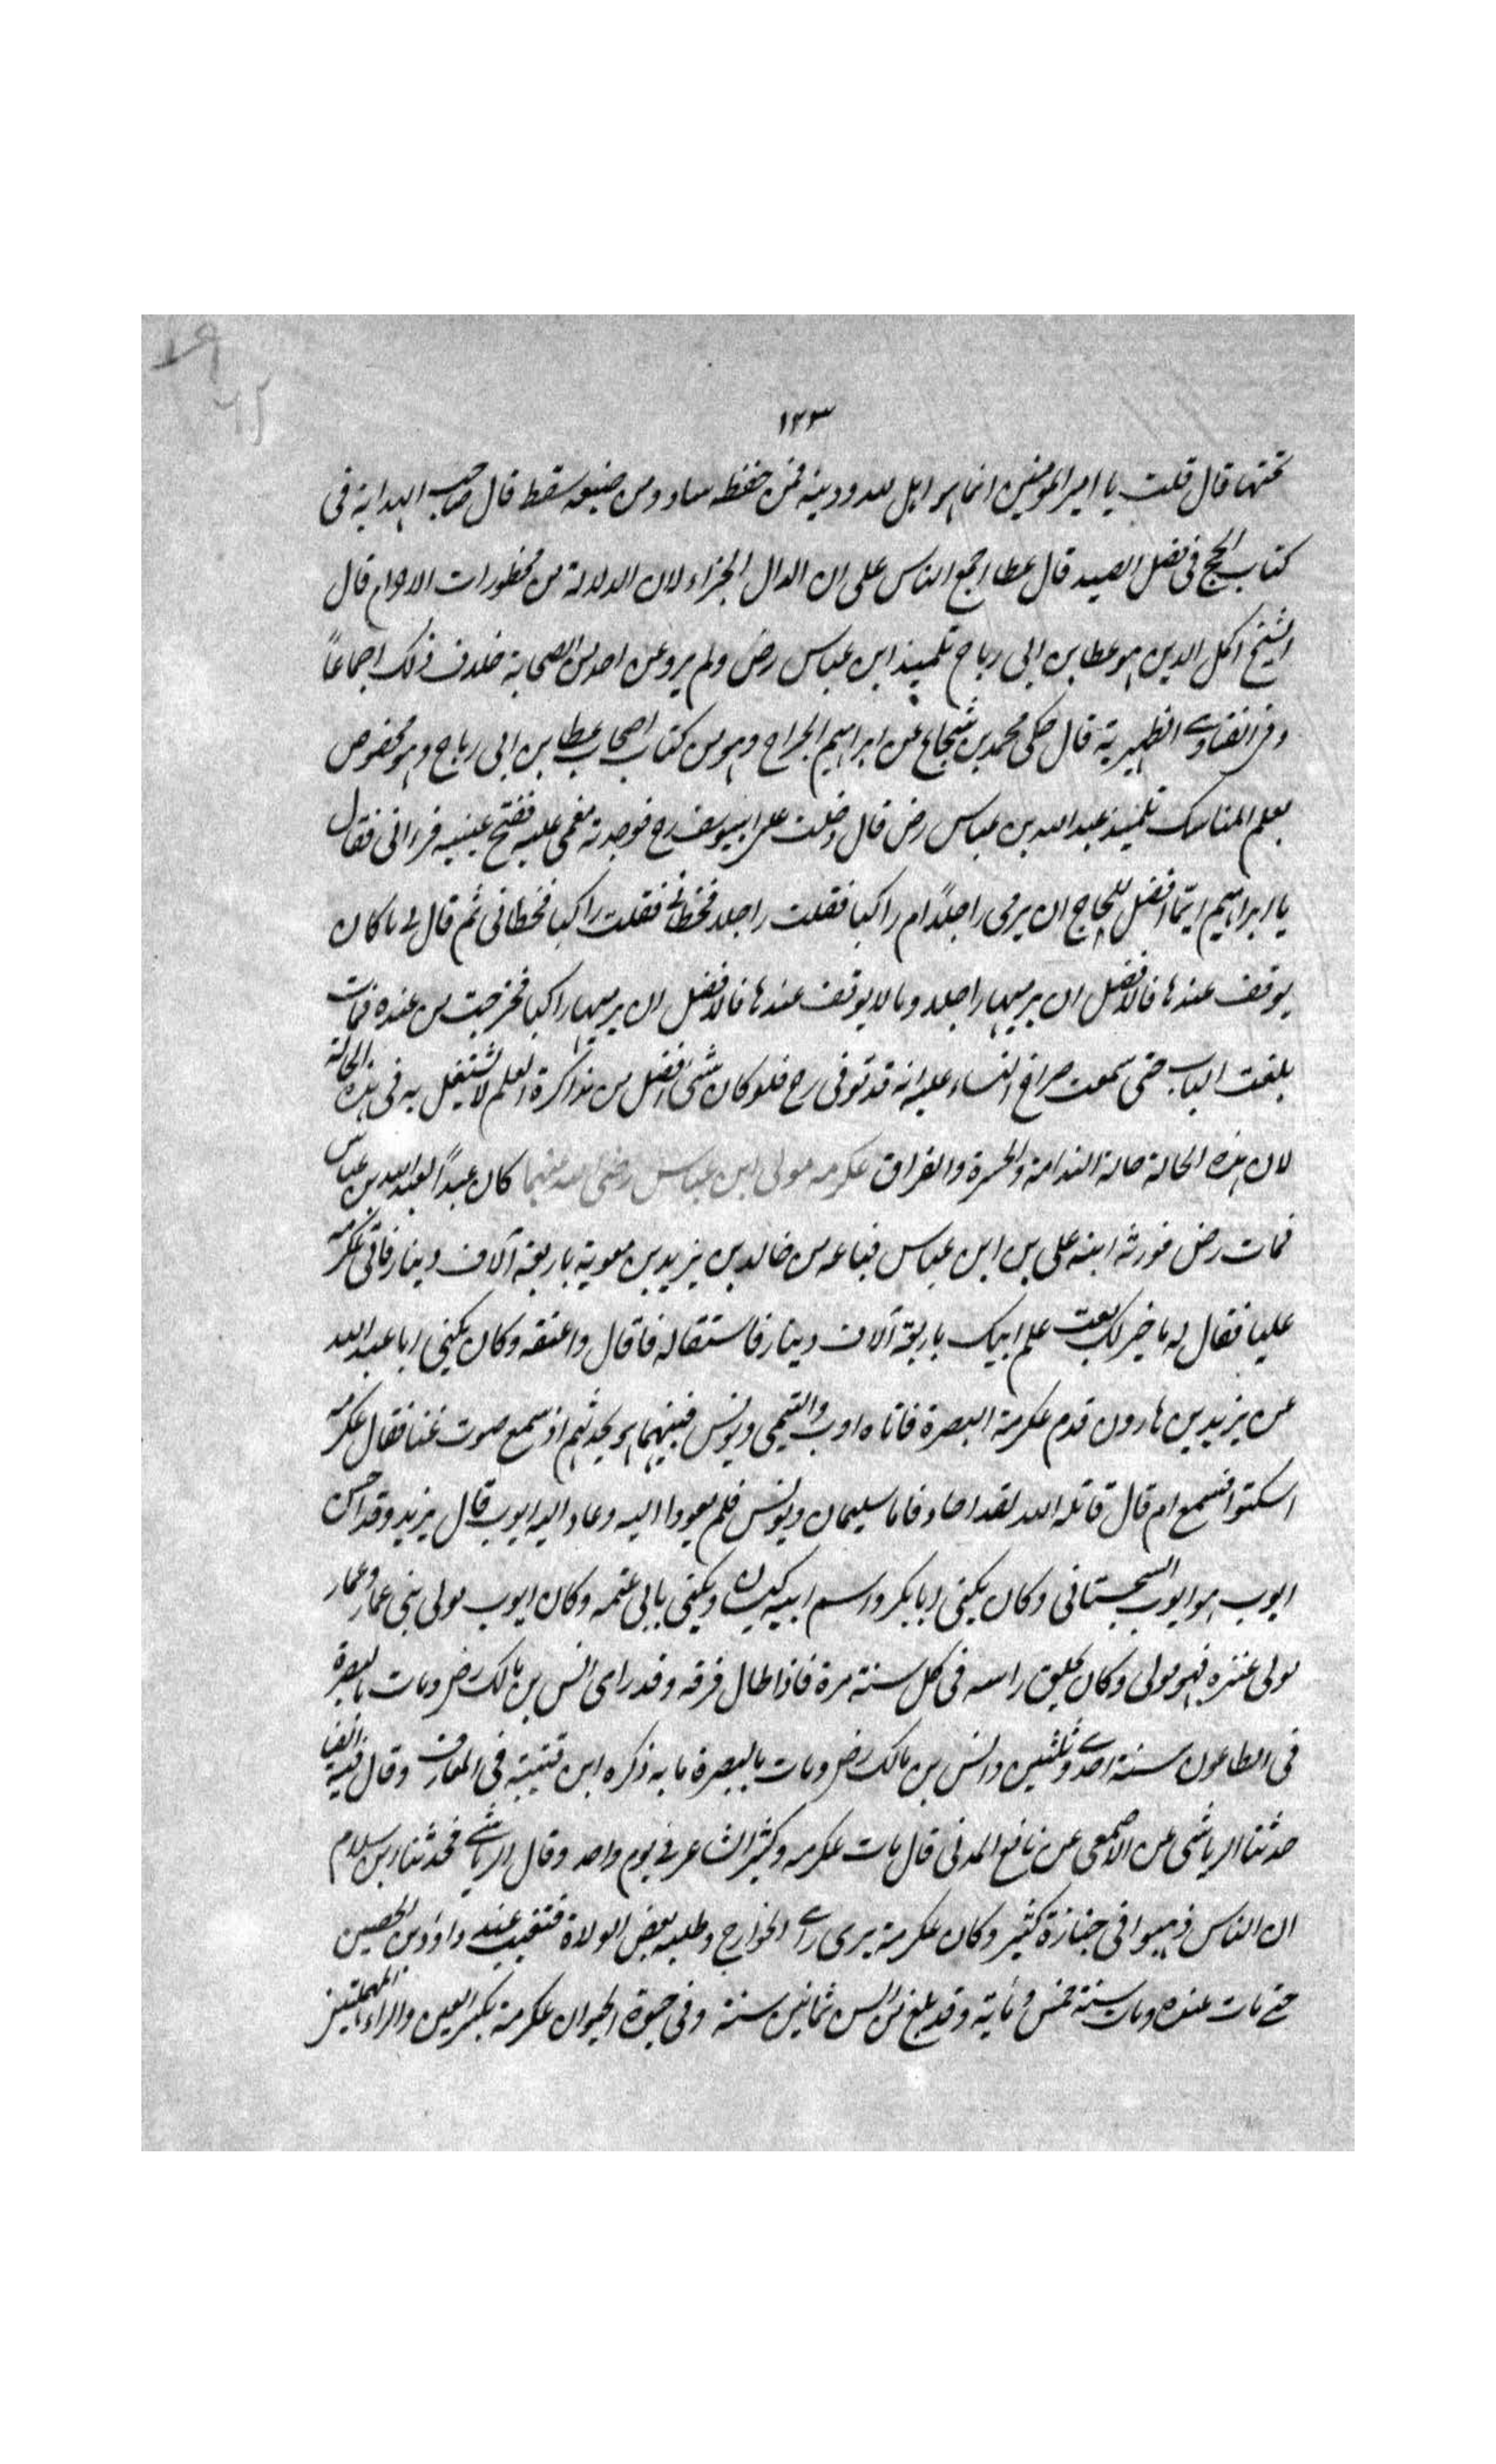 ١٢٣
تحتها قال قلت يا امير المؤمنين انما هو اهل لله ودينه فمن حفظه ساد ومن ضيعه سقط قال صاحب الهداية فى
كتاب الحج فى فصل الصيد قال عطا اجمع الناس على ان الدال الجزاء لان الدلالة من محظورات الاحرام قال
الشيخ اكمل الدين هو عطا بن ابى رباح تلميذ ابن عباس رض ولم يرو عن احد من الصحابة خلاف ذلك اجماعاً
وفى الفتاوى الظهيرية قال حكى محمد بن شجاع عن ابراهيم الجراح وهو من كتاب اصحاب عطا بن ابى رباح وهو مخصوص
بعلم المناسك تلميذ عبد الله بن عباس رض قال دخلت على ابى يوسف رح فوجدته مغمى عليه ففتح عينيه فرانى فقال
يا ابراهيم ايّما افضل للحاج ان يرمى راجلاً ام راكبا فقلت راجلا فخطانى فقلت راكبا فخطانى ثم قال لى ما كان
يوقف عندها فالافضل ان يرميها راجلا وما لا يوقف عندها فالافضل ان يرميها راكبا فخرجت من عنده فما
بلغت الباب حتى سمعت صراخ النساء عليه انه قد توفى رح فلو كان شئ افضل من مذاكرة العلم لاشتغل به فى هذه الحالة
لان هذه الحالة حالة الندامة والحسرة والفراق عكرمه مولى ابن عباس رضى الله عنهما كان عبداً لعبد الله بن عباس
فمات رض فورثه ابنه على بن ابن عباس فباعه من خالد بن يزيد بن معوية باربعة آلاف دينار فاتى عكرمه
عليا فقال له ما خير لك بعت علم ابيك باربعة آلاف دينار فاستقاله فاقال واعتقه وكان يكنى ابا عبد الله
عن يزيد بن هارون قدم عكرمة البصرة فاتاه ايوب والتيمى ويونس فبينهما هو يحدثهم اذ سمع صوت غنا فقال عكرمه
اسكتوا فنسمع ام قال قاتله الله لقد اجاد فاما سليمان ويونس فلم يعودا اليه وعاد اليه ايوب قال يزيد وقد احسن
ايوب هو ايوب السجستانى وكان يكنى ابا بكر واسم ابيه كيسان ويكنى بابى عتمه وكان ايوب مولى بنى عمار وعمار
مولى عنزه فهو مولى وكان يحلق راسه فى كل سنة مرة فاذا طال فرقه وقد راى انس بن مالك رض ومات بالبصرة
فى الطاعون سنة احدى وثلثين وانس بن مالك رض ومات بالبصرة ما به ذكره ابن قتيبة فى المعارف وقال فيه ايضا
حدثنا الرياشى عن الاصمعى عن نافع المدنى قال مات عكرمه وكثير الشاعر فى يوم واحد وقال الرياشى فحدثنا ابن سلام
ان الناس ذهبوا فى جنازة كثير وكان عكرمة يرى راى الخوارج وطلبه بعض الولاة فتغيب عند داود بن الحصين
حتى مات عنده ومات سنة خمس ومأية وقد بلغ من السن ثمانين سنة وفى حيوة الحيوان عكرمة بكسر العين والراء المهملتين